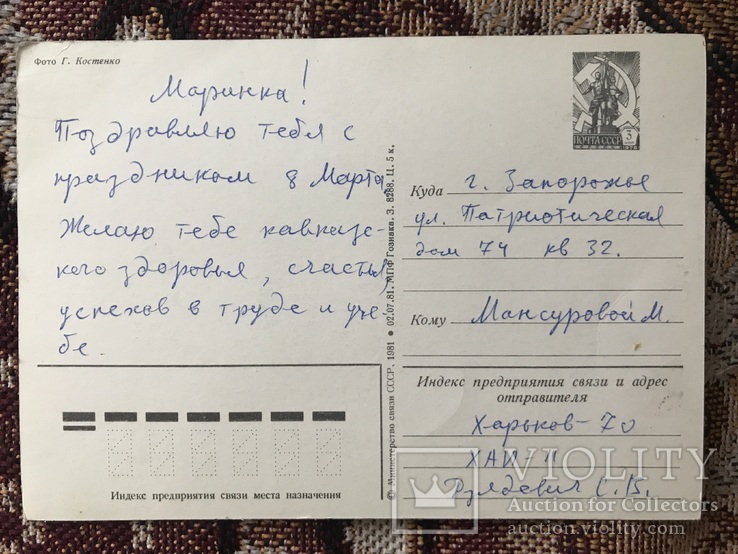 Фото Г. Костенко
Маринка!
Поздравляю тебя с
праздником 8 Марта,
Желаю тебе кавказс-
кого здоровья, счастья,
успехов в труде и уче-
бе.
ПОЧТА СССР 3
© Министерство связи СССР, 1981 • 02.07.81. МПФ Гознака. З. 8288. Ц. 5 к.
Куда г. Запорожье
ул. Патриотическая
дом 74 кв 32.
Кому Мансуровой М.
Индекс предприятия связи и адрес
отправителя
Харьков-70
ХАИ
С.В.
Индекс предприятия связи места назначения
VIOLITY
Auction for Collectors
auction.violity.com